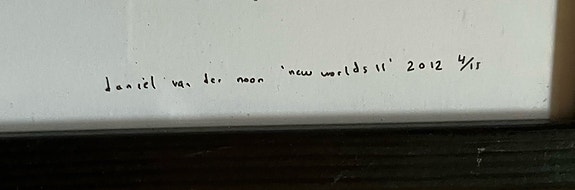 daniel van der noon 'new worlds 11' 2012 4/15